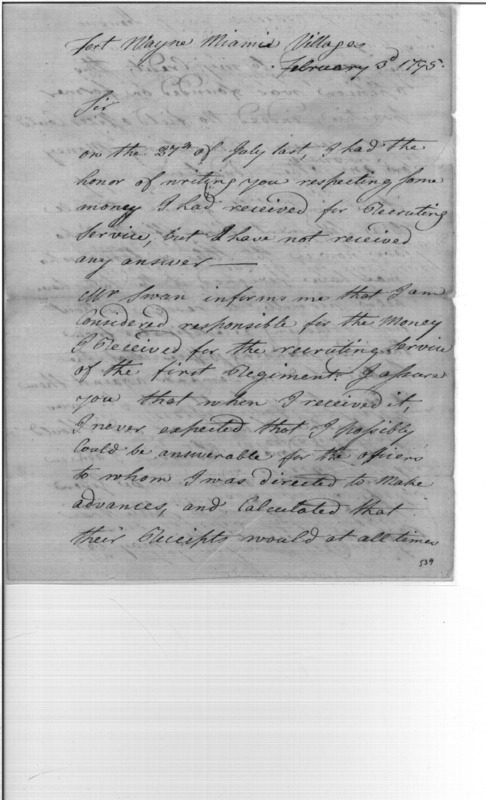 Fort Wayne Miamis Villages
February 3d 1795.
Sir
on the 27th of July last, I had the
honor of writing you respecting some
money I had received for Recruiting
Service, but I have not received
any answer —
Mr Swan informs me that I am
Considered responsible for the Money
I Received for the recruiting Service
of the first Regiment. I assure
you that when I received it,
I never expected that I possibly
Could be answerable for the officers
to whom I was directed to make
advances, and Calculated that
their Receipts would at all times
539